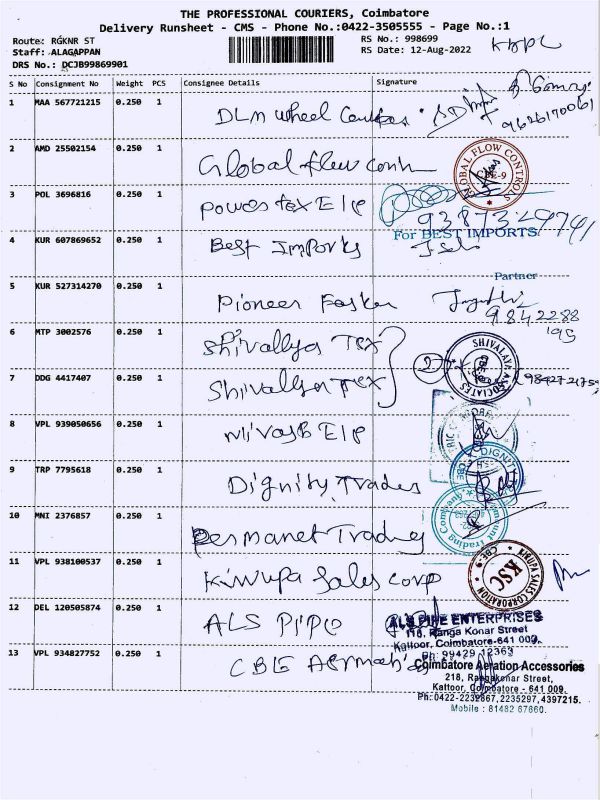 THE PROFESSIONAL COURIERS, Coimbatore
Delivery Runsheet - CMS - Phone No.:0422-3505555 - Page No.:1
Route: RGKNR ST
RS No.: 998699
Staff: ALAGAPPAN
RS Date: 12-Aug-2022
DRS No.: DCJB99869901
S No Consignment No Weight PCS Consignee Details Signature
1 MAA 567721215 0.250 1 DLM Wheel
9626170061
2 AMD 25502154 0.250 1 Global flow
GLOBAL FLOW CONTROLS
CBE-9
3 POL 3696816 0.250 1
9387329741
For BEST IMPORTS
4 KUR 607869652 0.250 1 Best Imports
Partner
5 KUR 527314270 0.250 1 Pioneer
9842288
195
6 MTP 3002576 0.250 1 Shivallya Tex
SHIVALAYA ASSOCIATES
7 DDG 4417407 0.250 1 Shivallya Tex
8 VPL 939050656 0.250 1
9 TRP 7795618 0.250 1 Dignity Trades
DIGNITY
10 MNI 2376857 0.250 1 Permanet Trading
Trading Company
11 VPL 938100537 0.250 1 Kirupa Sales Corp
KIRUPA SALES CORPORATION
KSC
CBE-9
12 DEL 120505874 0.250 1 ALS Pipe
ALS PIPE ENTERPRISES
116, Ranga Konar Street
Kattoor, Coimbatore-641 009.
Ph: 99429 12363
13 VPL 934827752 0.250 1 CBE
Coimbatore Aeration Accessories
218, Rangakonar Street,
Kattoor, Coimbatore - 641 009.
Ph:0422-2232867,2235297,4397215.
Mobile : 81482 67660.